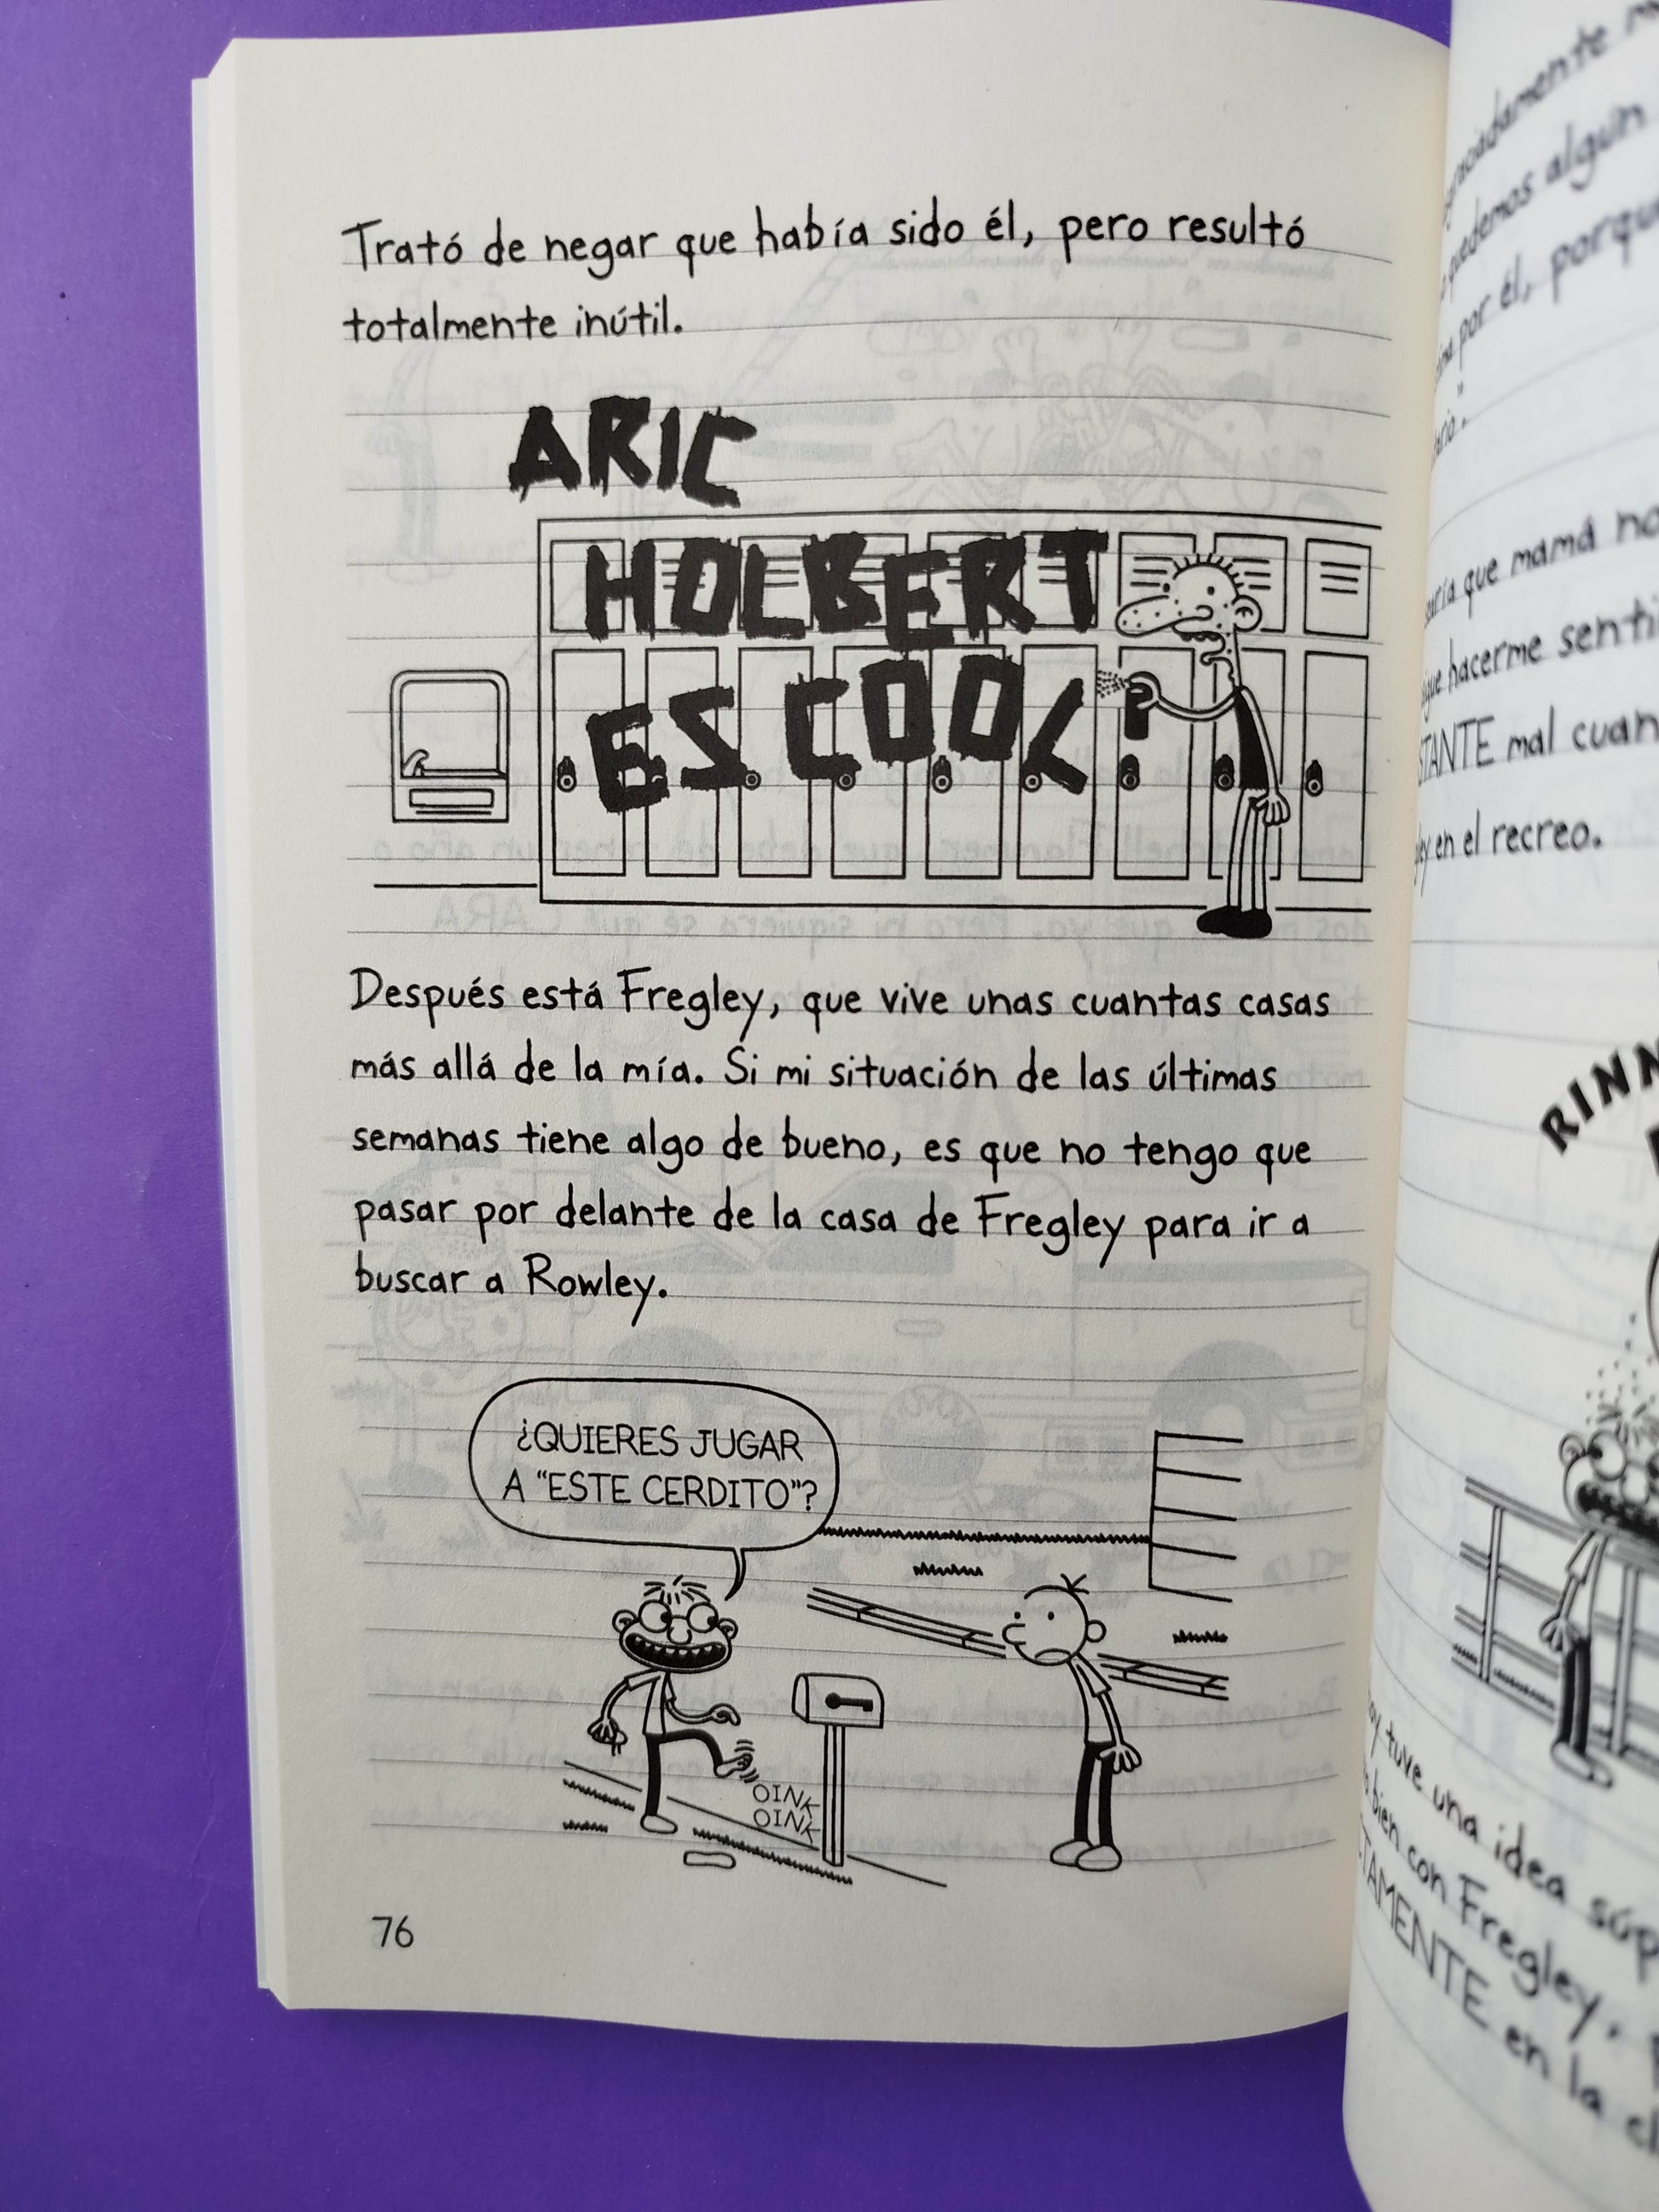 Trató de negar que había sido él, pero resultó
totalmente inútil.
ARIC
HOLBERT
ES COOL
Después está Fregley, que vive unas cuantas casas
más allá de la mía. Si mi situación de las últimas
semanas tiene algo de bueno, es que no tengo que
pasar por delante de la casa de Fregley para ir a
buscar a Rowley.
¿QUIERES JUGAR
A “ESTE CERDITO”?
OINK
OINK
76
quedemos algún
por él, porque
que mamá no
hacerme senti
mal cuan
en el recreo.
RINN
tuve una idea súp
bien con Fregley.
en la cl